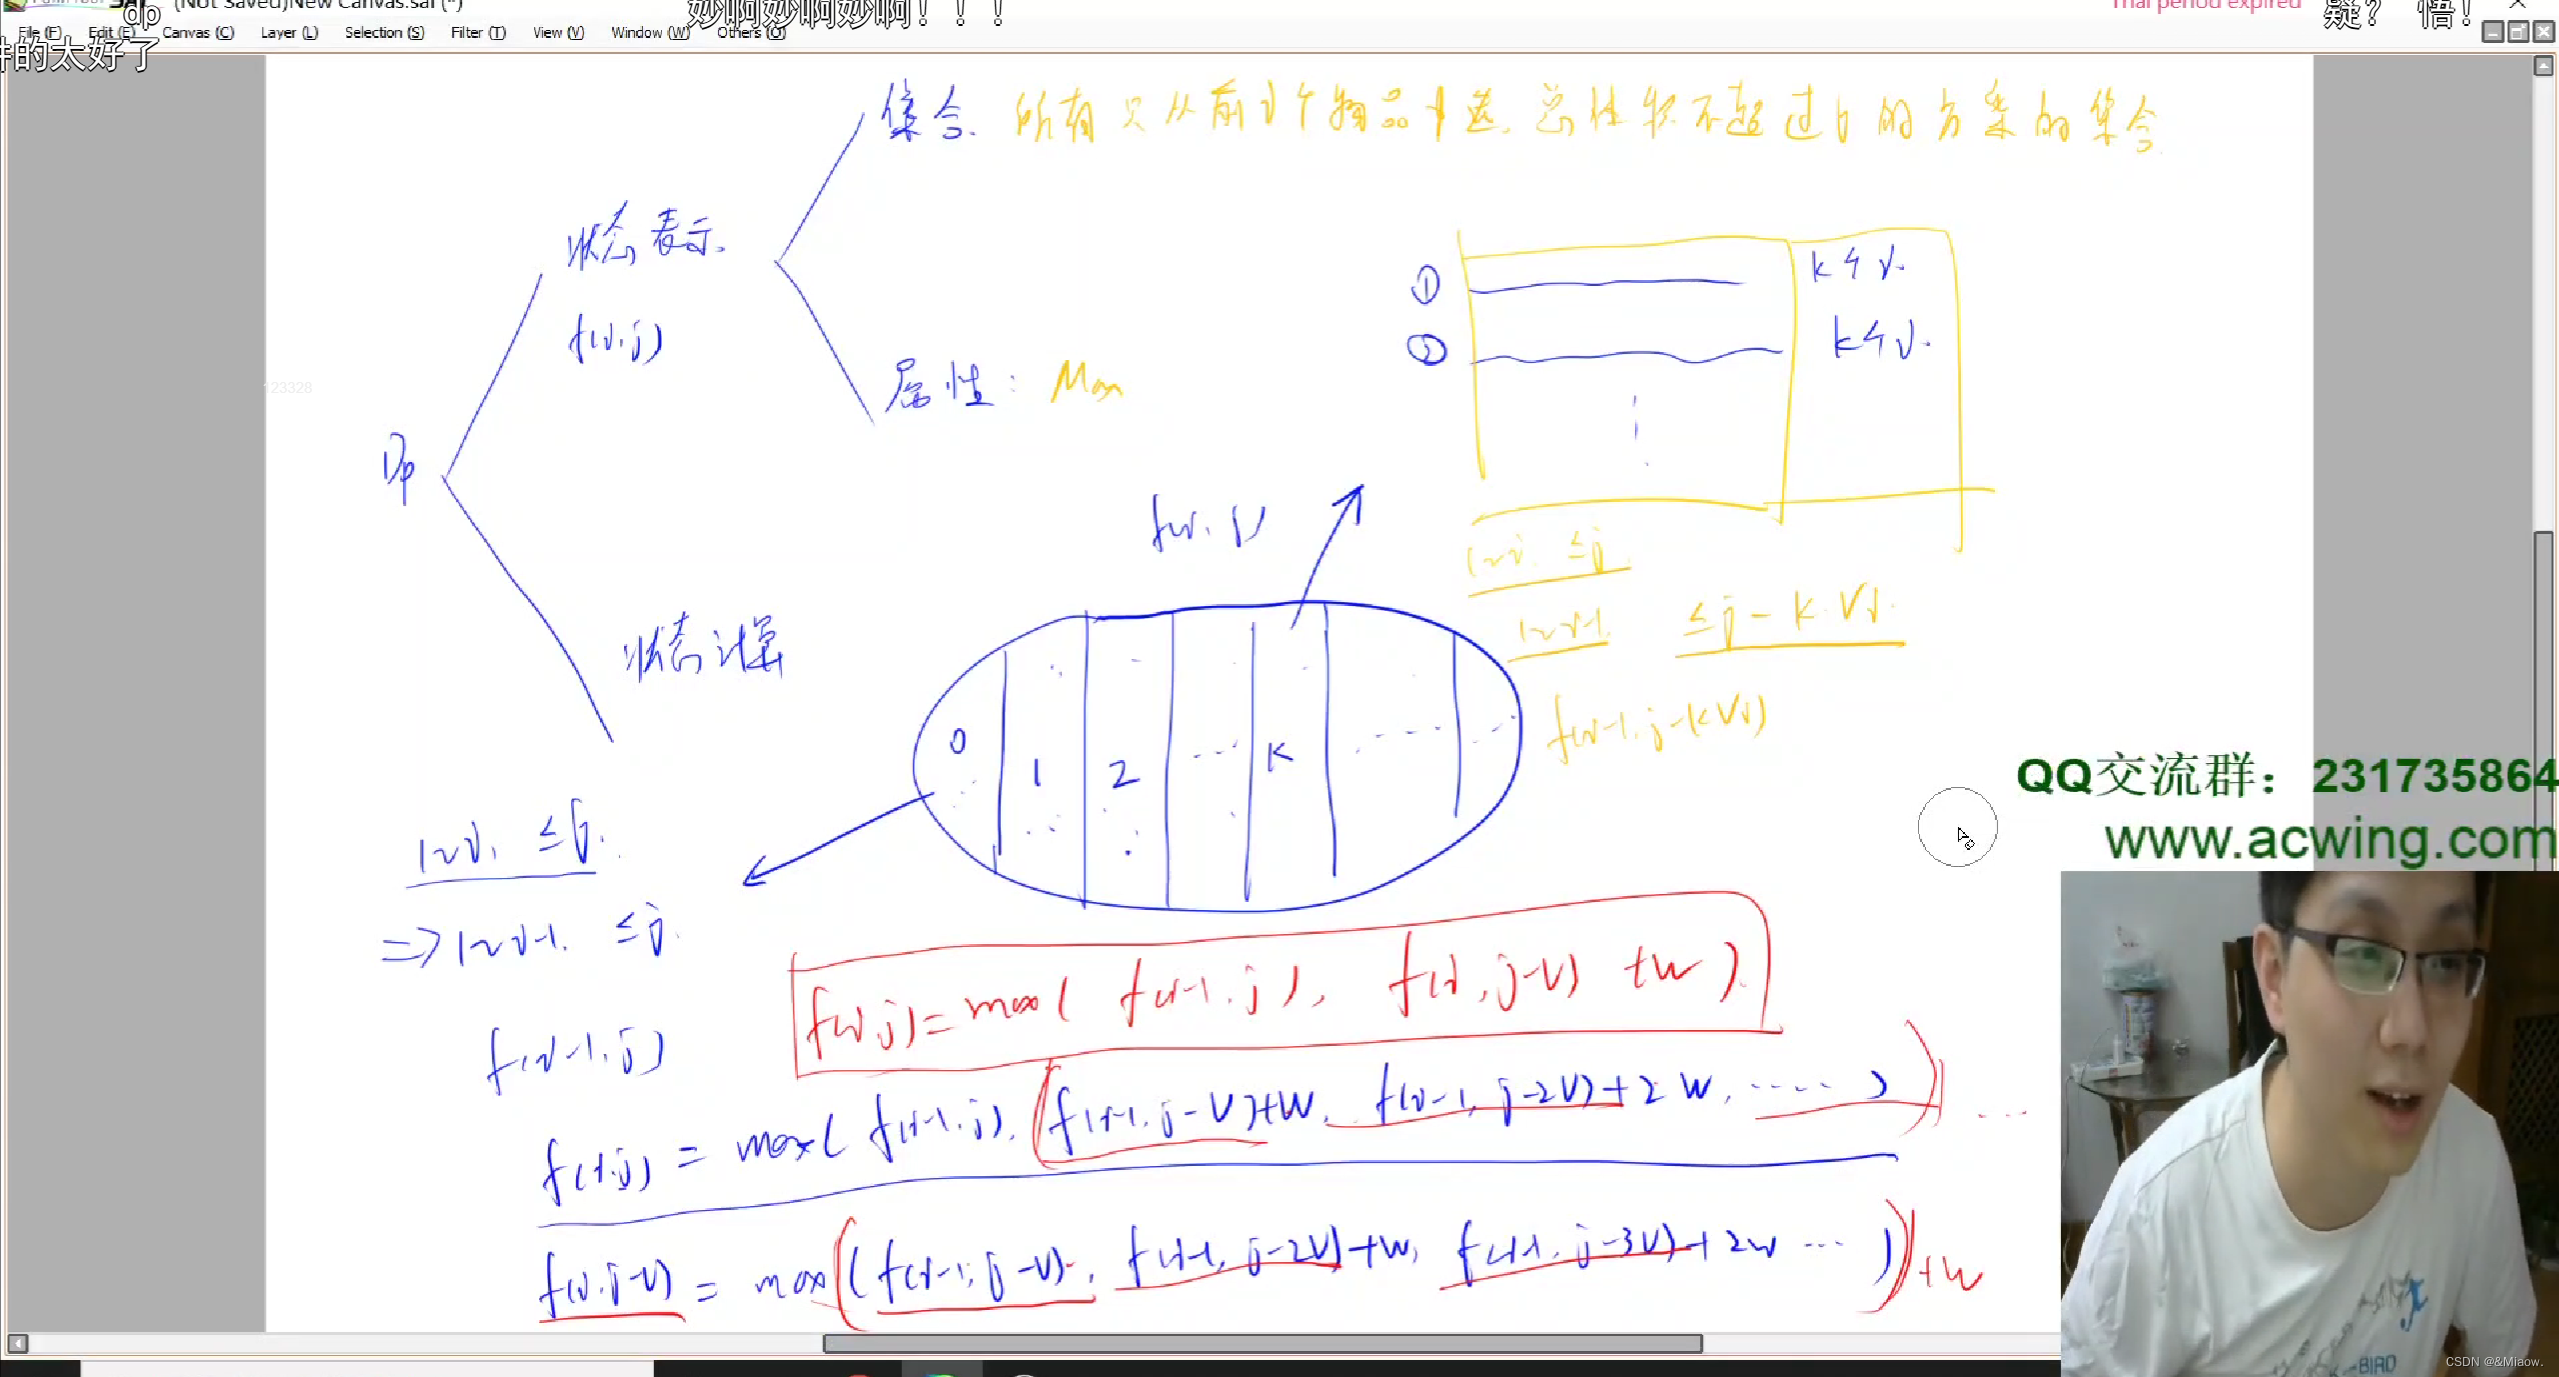 (Not Saved)New Canvas.sai (*)
Trial period expired
dp
妙啊妙啊妙啊！！！
疑？ 悟！
File (F) Edit (E) Canvas (C) Layer (L) Selection (S) Filter (T) View (V) Window (W) Others (O)
的太好了
集合 所有只从前i个物品中选,总体积不超过j的方案的集合
状态表示
f(i,j)
① k个i.
② k个i.
属性： Max
Dp
f(i,j)
1~i ≤j
1~i-1 ≤j-k·Vi
f(i-1,j-kVi)
状态计算
0 1 2 .... K
QQ交流群：231735864
www.acwing.com
1~i, ≤j.
=> 1~i-1. ≤j.
f(i-1,j)
f(i,j)=max( f(i-1,j), f(i,j-V) +W ).
f(i,j) = max( f(i-1,j), f(i-1,j-V)+W, f(i-1,j-2V)+2W, ..... ) ...
f(i,j-V) = max( f(i-1,j-V), f(i-1,j-2V)+W, f(i-1,j-3V)+2W ... ) +W
BIRD
CSDN @&Miaow.
123328